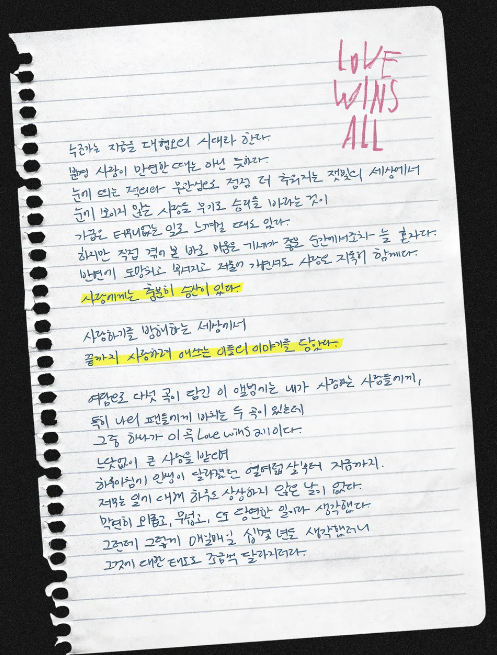 LOVE
WINS
ALL
누군가는 지금을 대혐오의 시대라 한다.
분명 사랑이 만연한 때는 아닌 듯하다.
눈에 띄는 적의와 무관심으로 점점 더 추워지는 잿빛의 세상에서
눈에 보이지 않는 사랑을 무기로 승리를 바라는 것이
가끔은 터무니없는 일로 느껴질 때도 있다.
하지만 직접 겪어 본 바로 미움은 기세가 좋을 순간에서조차 늘 혼자다.
반면에 도망치고 부서지고 저물어 가면서도 사랑은 지독히 함께다.
사랑에게는 충분히 승산이 있다.
사랑하기를 방해하는 세상에서
끝까지 사랑하려 애쓰는 이들의 이야기를 담았다.
여담으로 다섯 곡이 담긴 이 앨범에는 내가 사랑하는 사람들에게,
특히 나의 팬들에게 바치는 두 곡이 있는데
그중 하나가 이 곡 Love wins all이다.
느닷없이 큰 사랑을 받으며
하루아침에 인생이 달라졌던 열여덟 살부터 지금까지.
저무는 일에 대해 하루도 상상하지 않은 날이 없다.
막연히 외롭고, 무섭고, 또 당연한 일이라 생각했다.
그런데 그렇게 매일매일 십몇 년을 생각했더니
그것에 대한 태도도 조금씩 달라지더라.